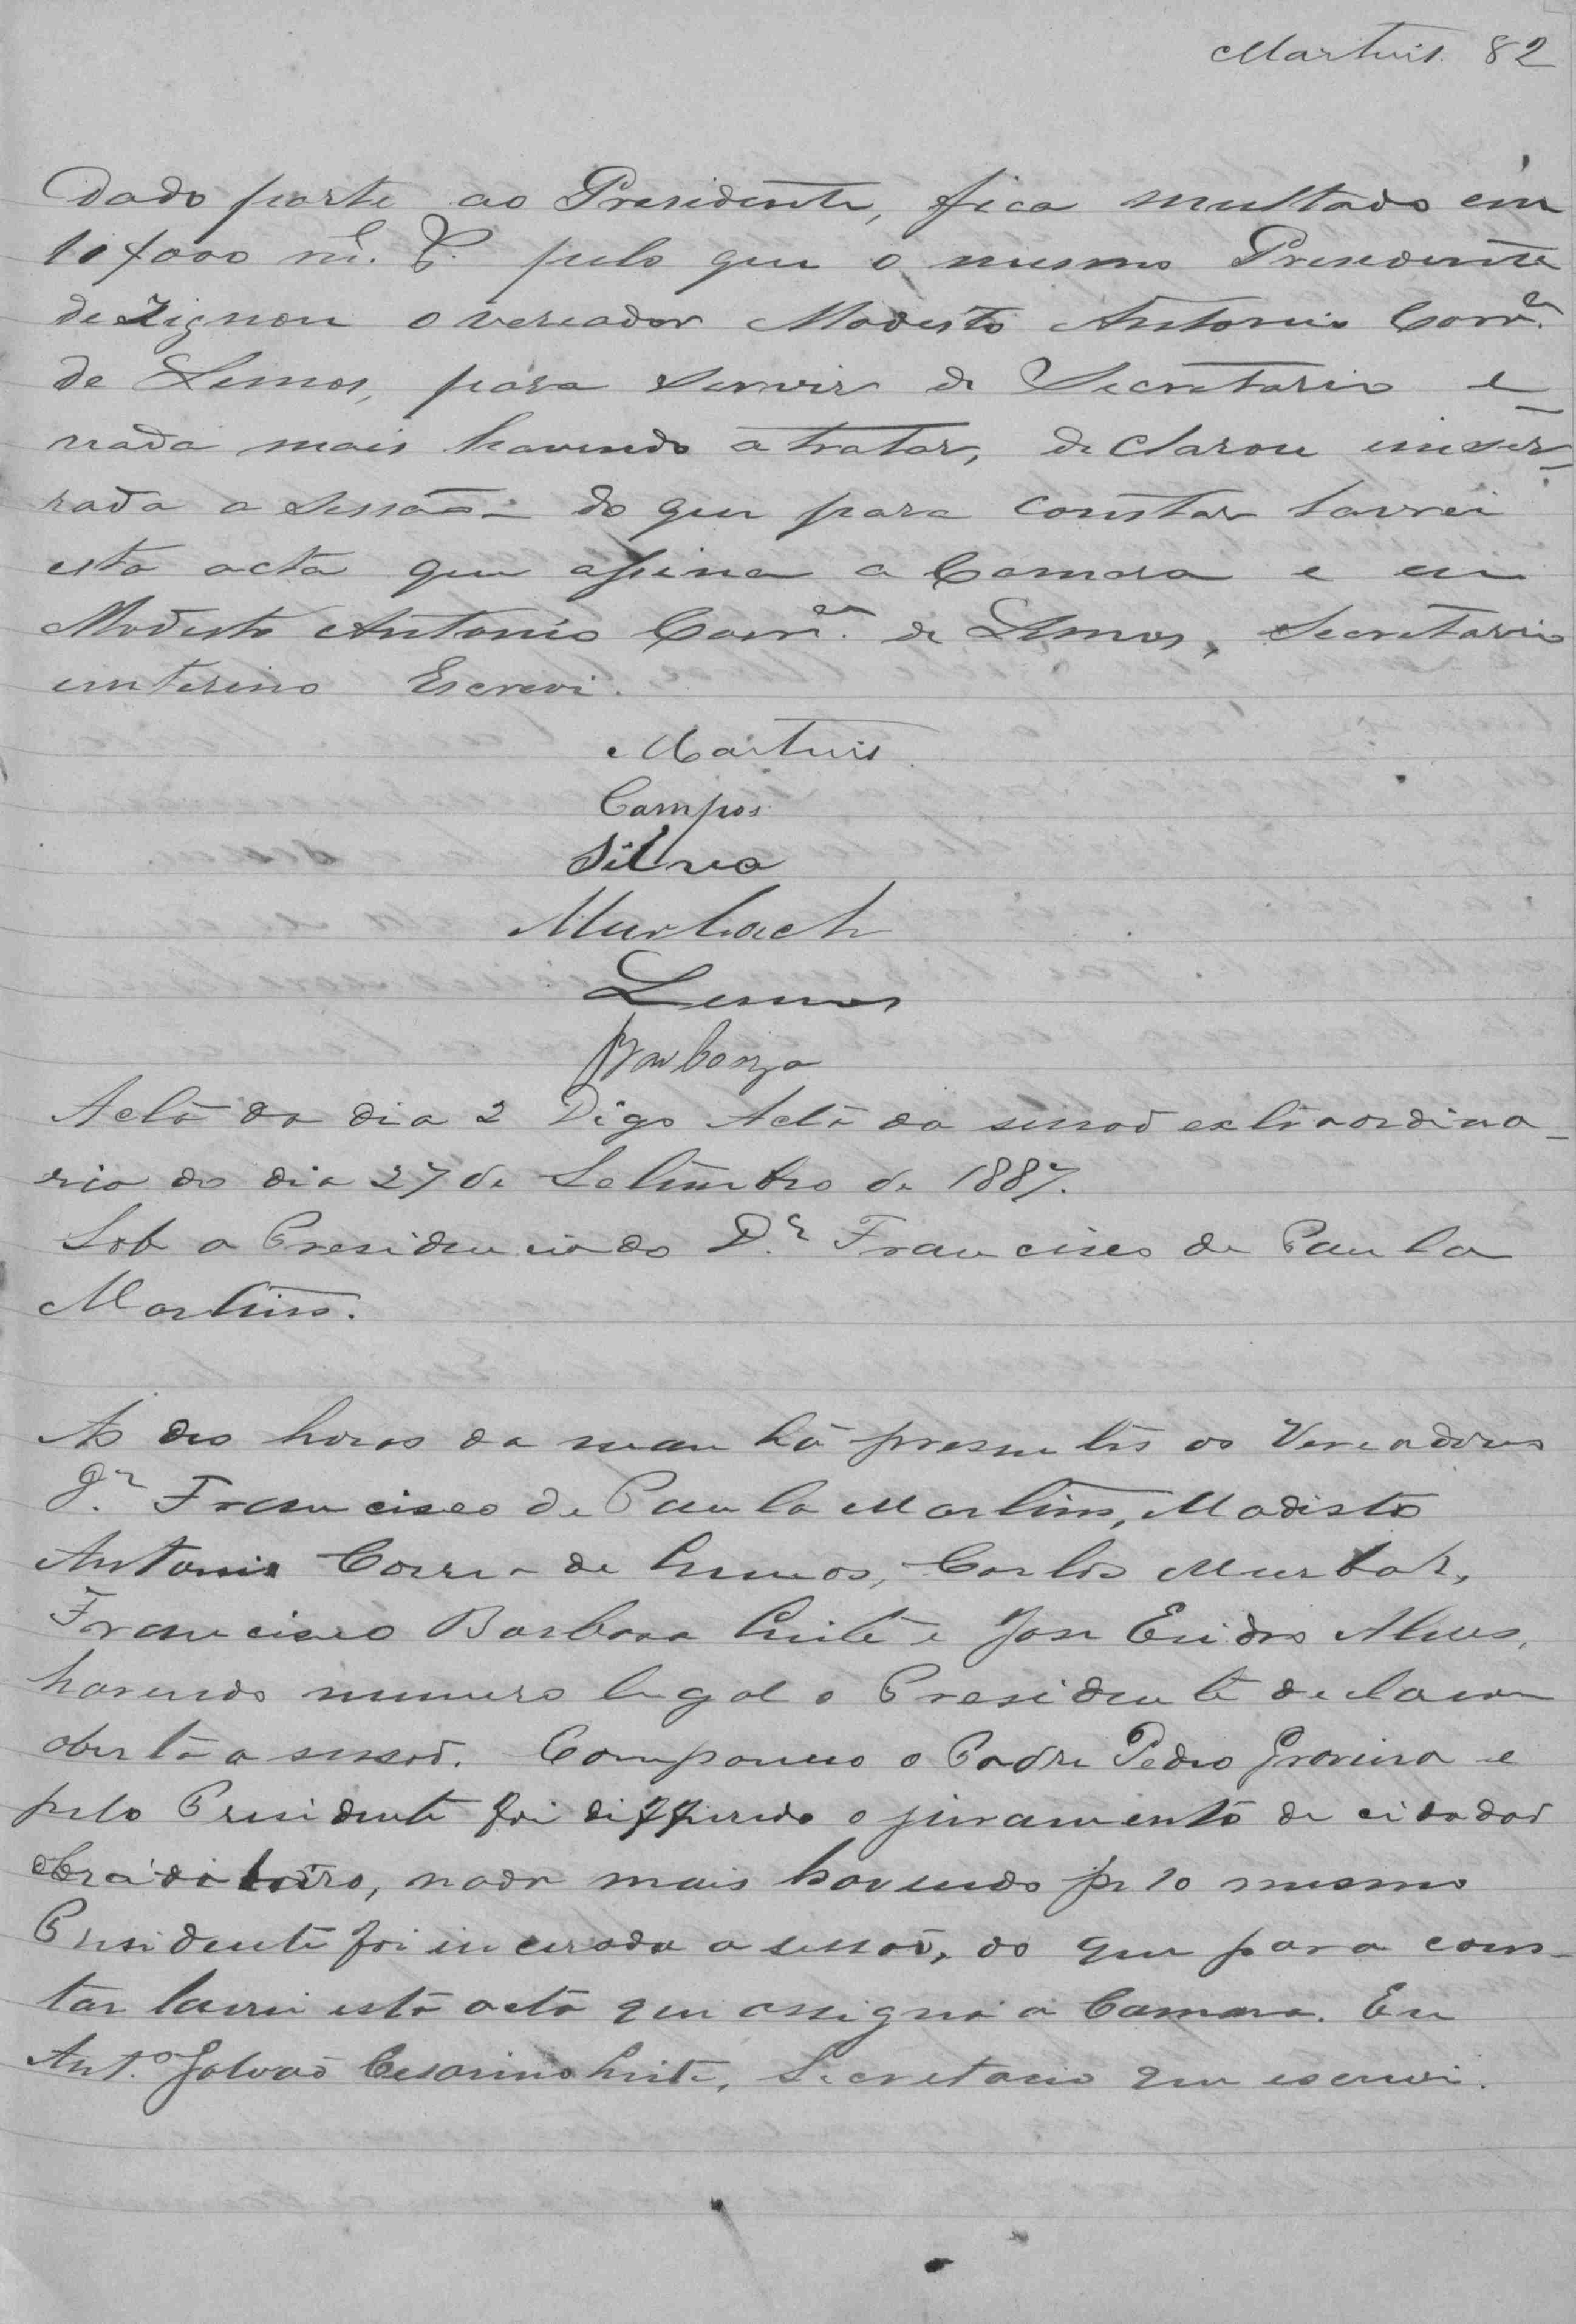 Martins. 82
Dado parte ao Presidente, fica multado em
10$000 rs. pelo que o mesmo Presidente
dezignou o vereador Modesto Antonio Corrª.
de Lemos, para servir de Secretario e
nada mais havendo a tratar, declarou incer-
rada a sessão do que para constar lavrei
esta acta que assina a Camara e eu
Modesto Antonio Corrª. de Lemos, Secretario
interino Escrevi.
Martins
Campos
Silva
Murbach
Lemos
Barboza
Acta do dia 2 Digo Acta da sessaõ extraordina-
ria do dia 27 de Setembro de 1887.
Sob a Presidencia do Dr. Francisco de Paula
Martins.
As des horas da manhã presentes os Vereadores
Dr. Francisco de Paula Martins, Modisto
Antonio Correa de Lemos, Carlos Murbak,
Francisco Barbosa Leite e Jose Alves,
havendo numero legal o Presidente declarou
aberta a sessaõ. Compareceo o Padre Pedro e
pelo Presidente foi differido o juramento de cidadaõ
Brazileiro, nada mais havendo pelo mesmo
Presidente foi incerada a sessaõ, do que para cons-
tar lavrei esta acta que assigna a Camara. Eu
Antº. Galvaõ Cesarino Leite, Secretario que escrevi.